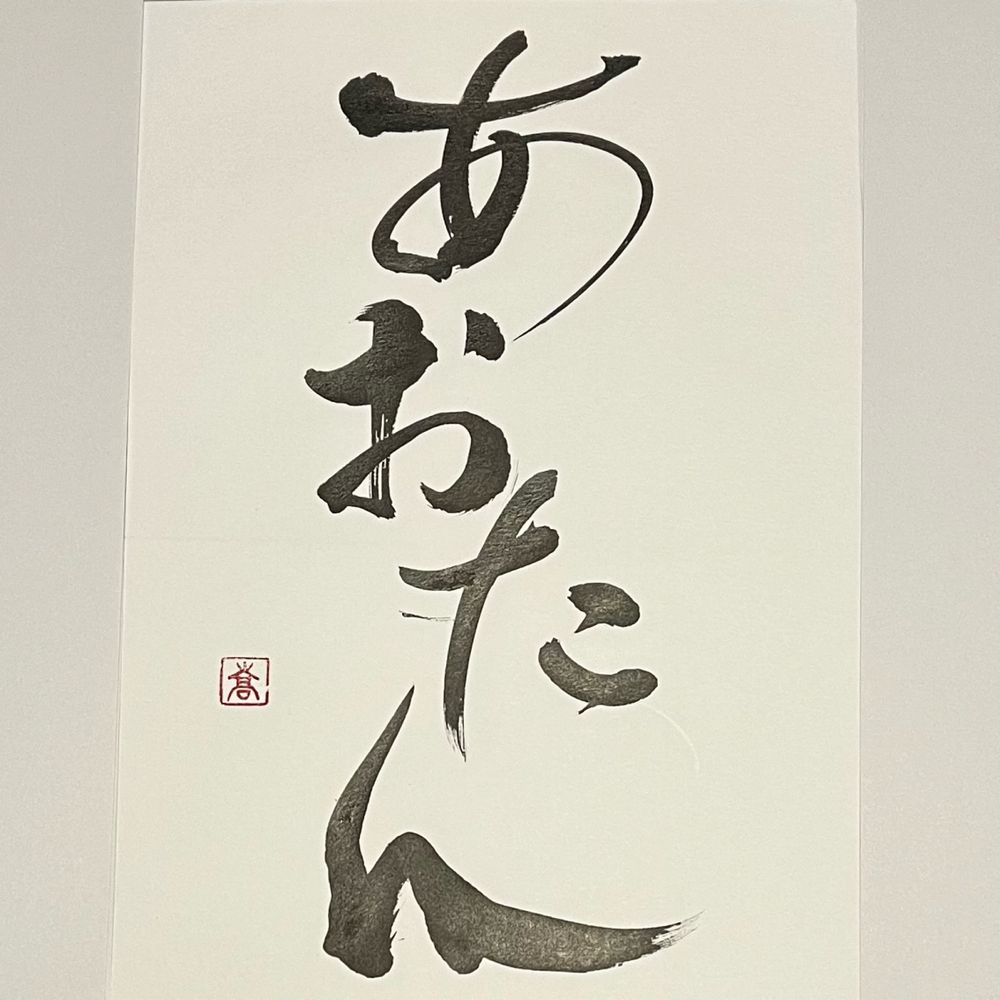 あおたん